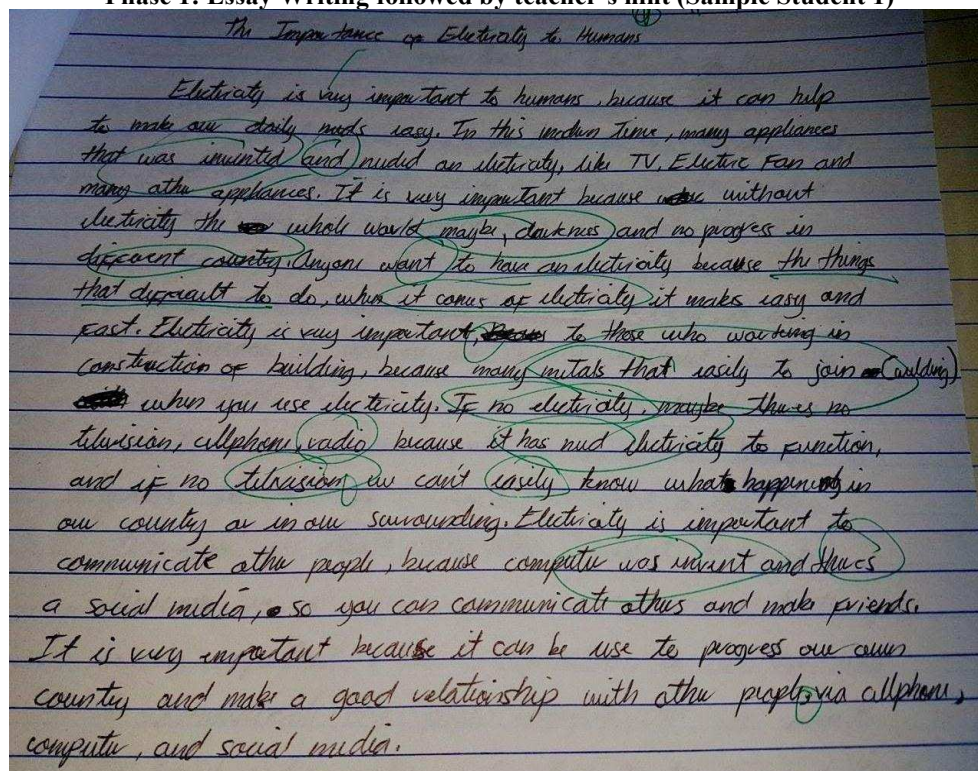 Phase 1: Essay Writing followed by teacher's hint (Sample Student 1)
The Importance of Electricity to Humans
Electricity is very important to humans, because it can help
to make our daily needs easy. In this modern time, many appliances
that was invented and needed an electricity, like TV, Electric Fan and
many other appliances. It is very important because without
electricity the whole world maybe, darkness and no progress in
different country. Anyone want to have an electricity because the things
that difficult to do, when it comes of electricity it makes easy and
fast. Electricity is very important, to those who working in
construction of building, because many metals that easily to join (welding)
when you use electricity. If no electricity, maybe there's no
television, cellphone, radio because it has need electricity to function,
and if no television, we can't easily know what happening in
our country or in our sourounding. Electricity is important to
communicate other people, because computer was invent and there's
a social media, so you can communicate others and make friends.
It is very important because it can be use to progress our own
country and make a good relationship with other people, via cellphone,
computer, and social media.